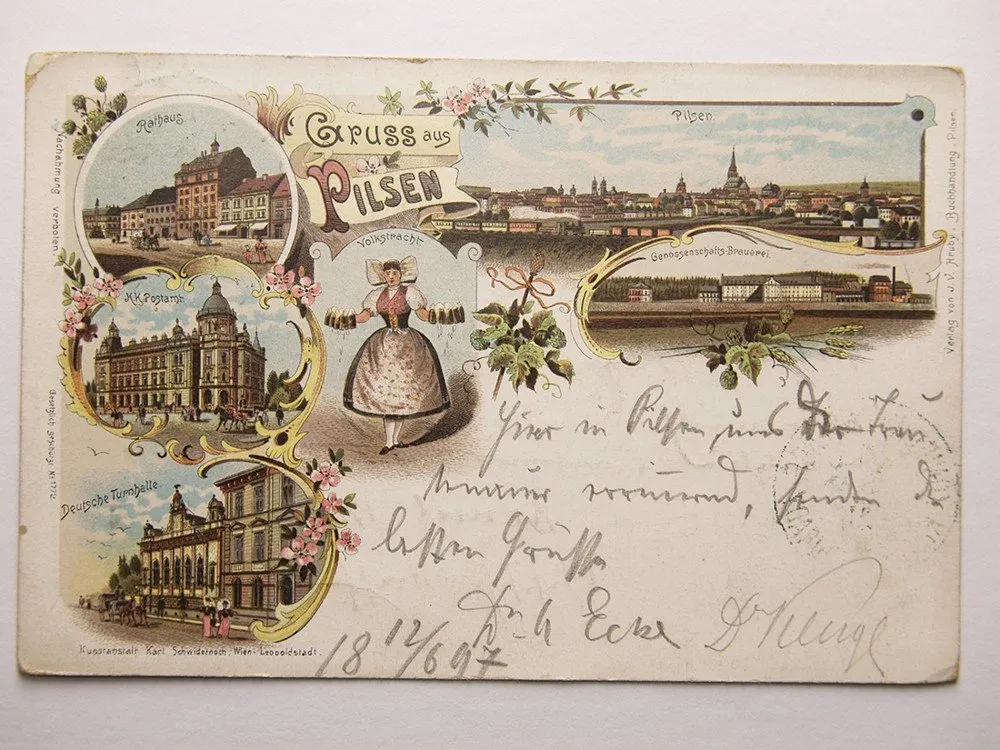 Rathaus.
Gruss aus
Pilsen
Pilsen.
Volkstracht
Genossenschafts-Brauerei.
K.K. Postamt.
Deutsche Turnhalle.
Nachahmung verboten.
Gesetzlich geschützt Nr. 1772.
Verlag von J. V. Hruby, Buchhandlung, Pilsen.
Kunstanstalt Karl Schwidernoch, Wien-Leopoldstadt.
Hier in Pilsen, uns der
erinnernd, senden die
besten Grüsse
Ecke Dr
18 12/6 97